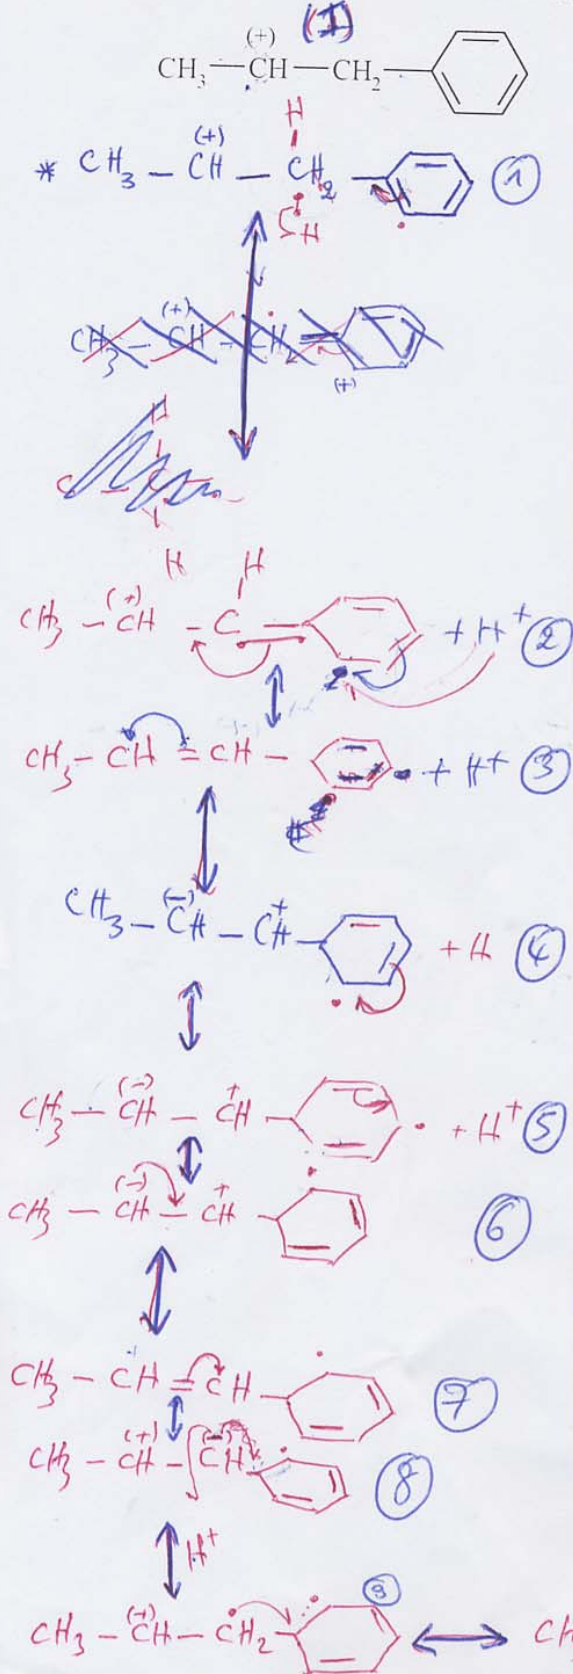 (I)
(+)
CH₃—CH—CH₂—
H
* CH₃ – CH(+) – CH₂ – ①
H
CH₃ – CH(+) – CH₂ =
(+)
H H
CH₃ – CH(+) – C = + H⁺ ②
CH₃ – CH = CH – + H⁺ ③
CH₃ – CH(–) – CH⁺ – + H ④
CH₃ – CH(–) – CH⁺ – + H⁺ ⑤
CH₃ – CH(–) – CH⁺ – ⑥
CH₃ – CH = CH – ⑦
CH₃ – CH(+) – CH(–) ⑧
H⁺
⑨
CH₃ – CH(+) – CH₂ – ↔ CH